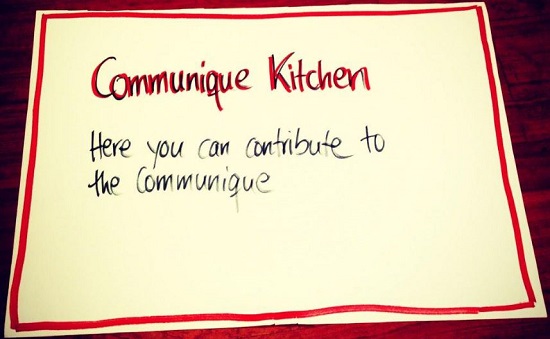 Communique Kitchen
Here you can contribute to
the Communique